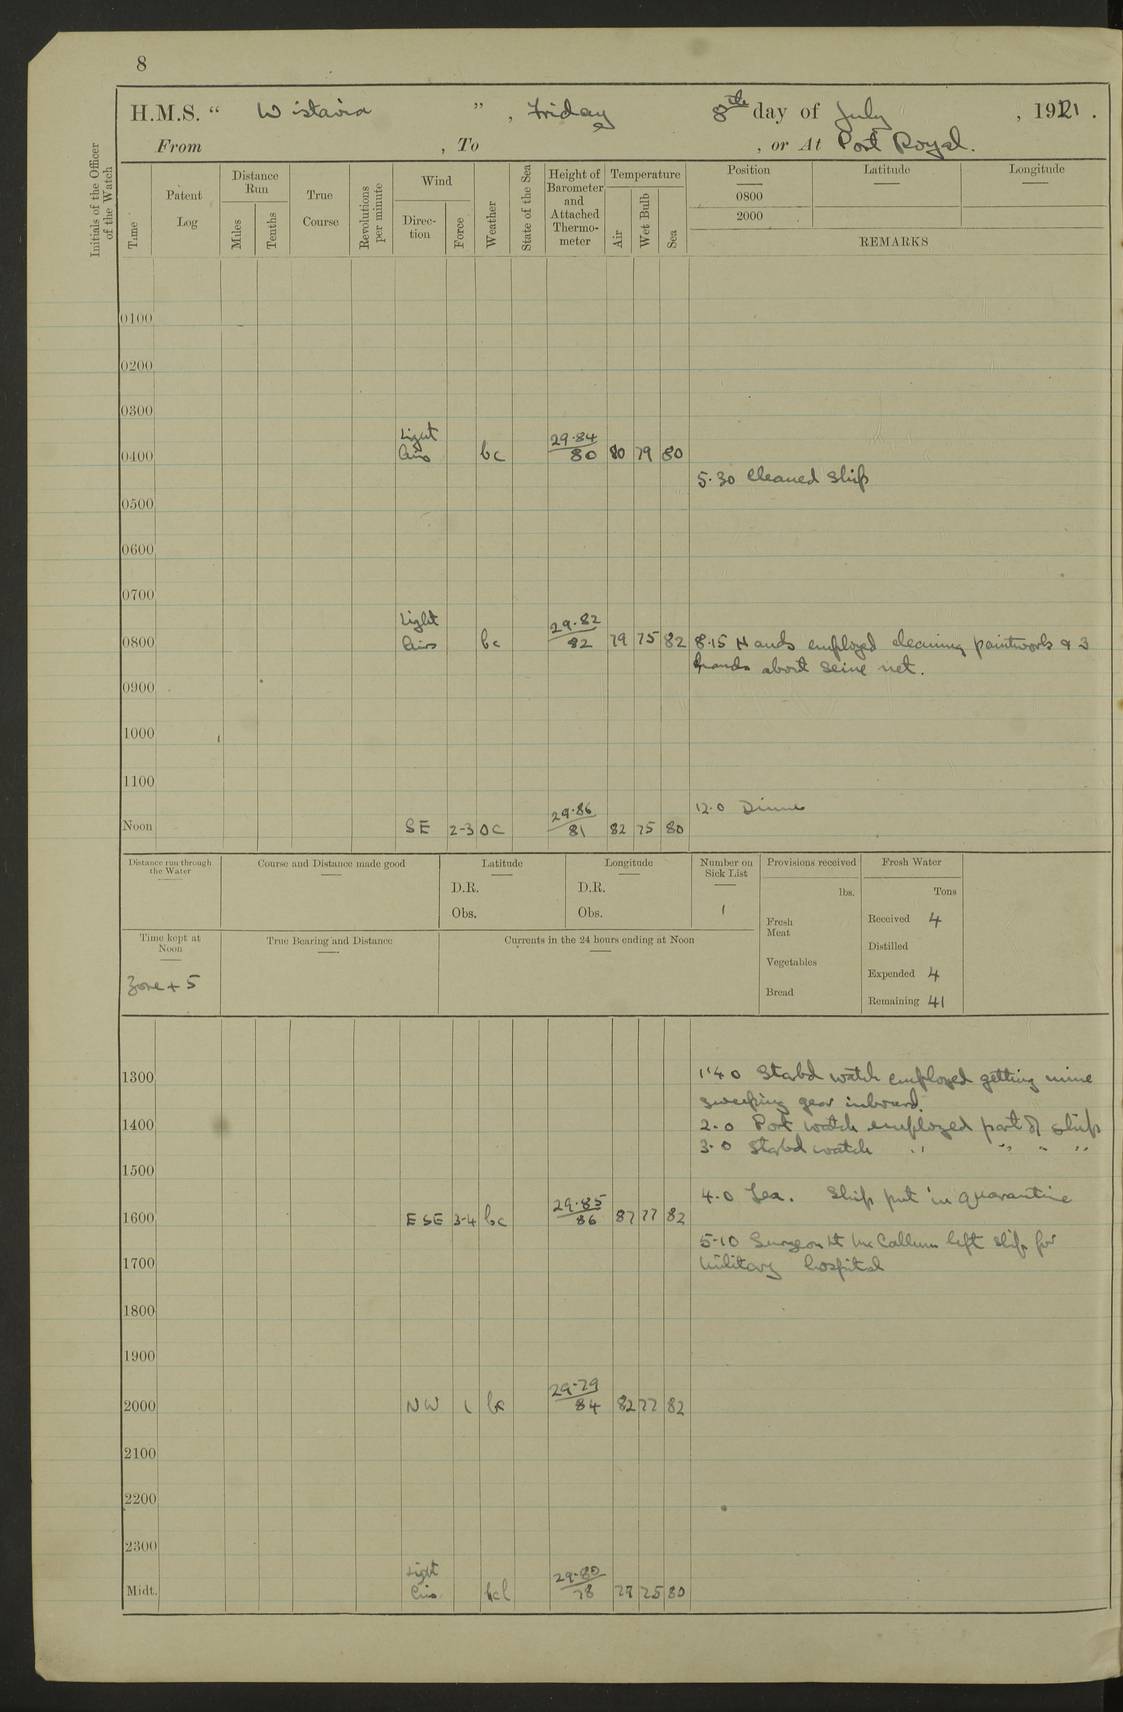 8
H.M.S. “ Wistaria ” , Friday 8th day of July , 1921 .
From , To , or At Port Royal.
Initials of the Officer of the Watch
Time
Patent Log
Distance Run
Miles
Tenths
True Course
Revolutions per minute
Wind
Direc- tion
Force
Weather
State of the Sea
Height of Barometer and Attached Thermo- meter
Temperature
Air
Wet Bulb
Sea
Position Latitude Longitude
0800
2000
REMARKS
0100
0200
0300
Light 29.84
0400 Airs bc 80 80 79 80
5.30 Cleaned ship
0500
0600
0700
Light 29.82
0800 Airs bc 82 79 75 82 8.15 Hands employed cleaning paintwork & 3
hands about seine net.
0900
1000
1100
29.86 12.0 Dinner
Noon SE 2-3 oc 81 82 75 80
Distance run through the Water
Course and Distance made good
Latitude
D.R.
Obs.
Longitude
D.R.
Obs.
Number on Sick List
1
Provisions received
lbs.
Fresh Meat
Vegetables
Bread
Fresh Water
Tons
Received 4
Distilled
Expended 4
Remaining 41
Time kept at Noon
Zone + 5
True Bearing and Distance
Currents in the 24 hours ending at Noon
1300 1.40 Starbd watch employed getting mine
sweeping gear inboard.
1400 2.0 Port watch employed part of ship
3.0 Starbd watch " " " "
1500
4.0 Tea. Ship put in quarantine
29.85
1600 ESE 3-4 bc 86 87 77 82
5.10 Surgeon Lt McCallum left ship for
1700 military hospital
1800
1900
29.79
2000 NW 1 bc 84 82 77 82
2100
2200
2300
Light 29.80
Midt. Airs bcl 78 79 75 80